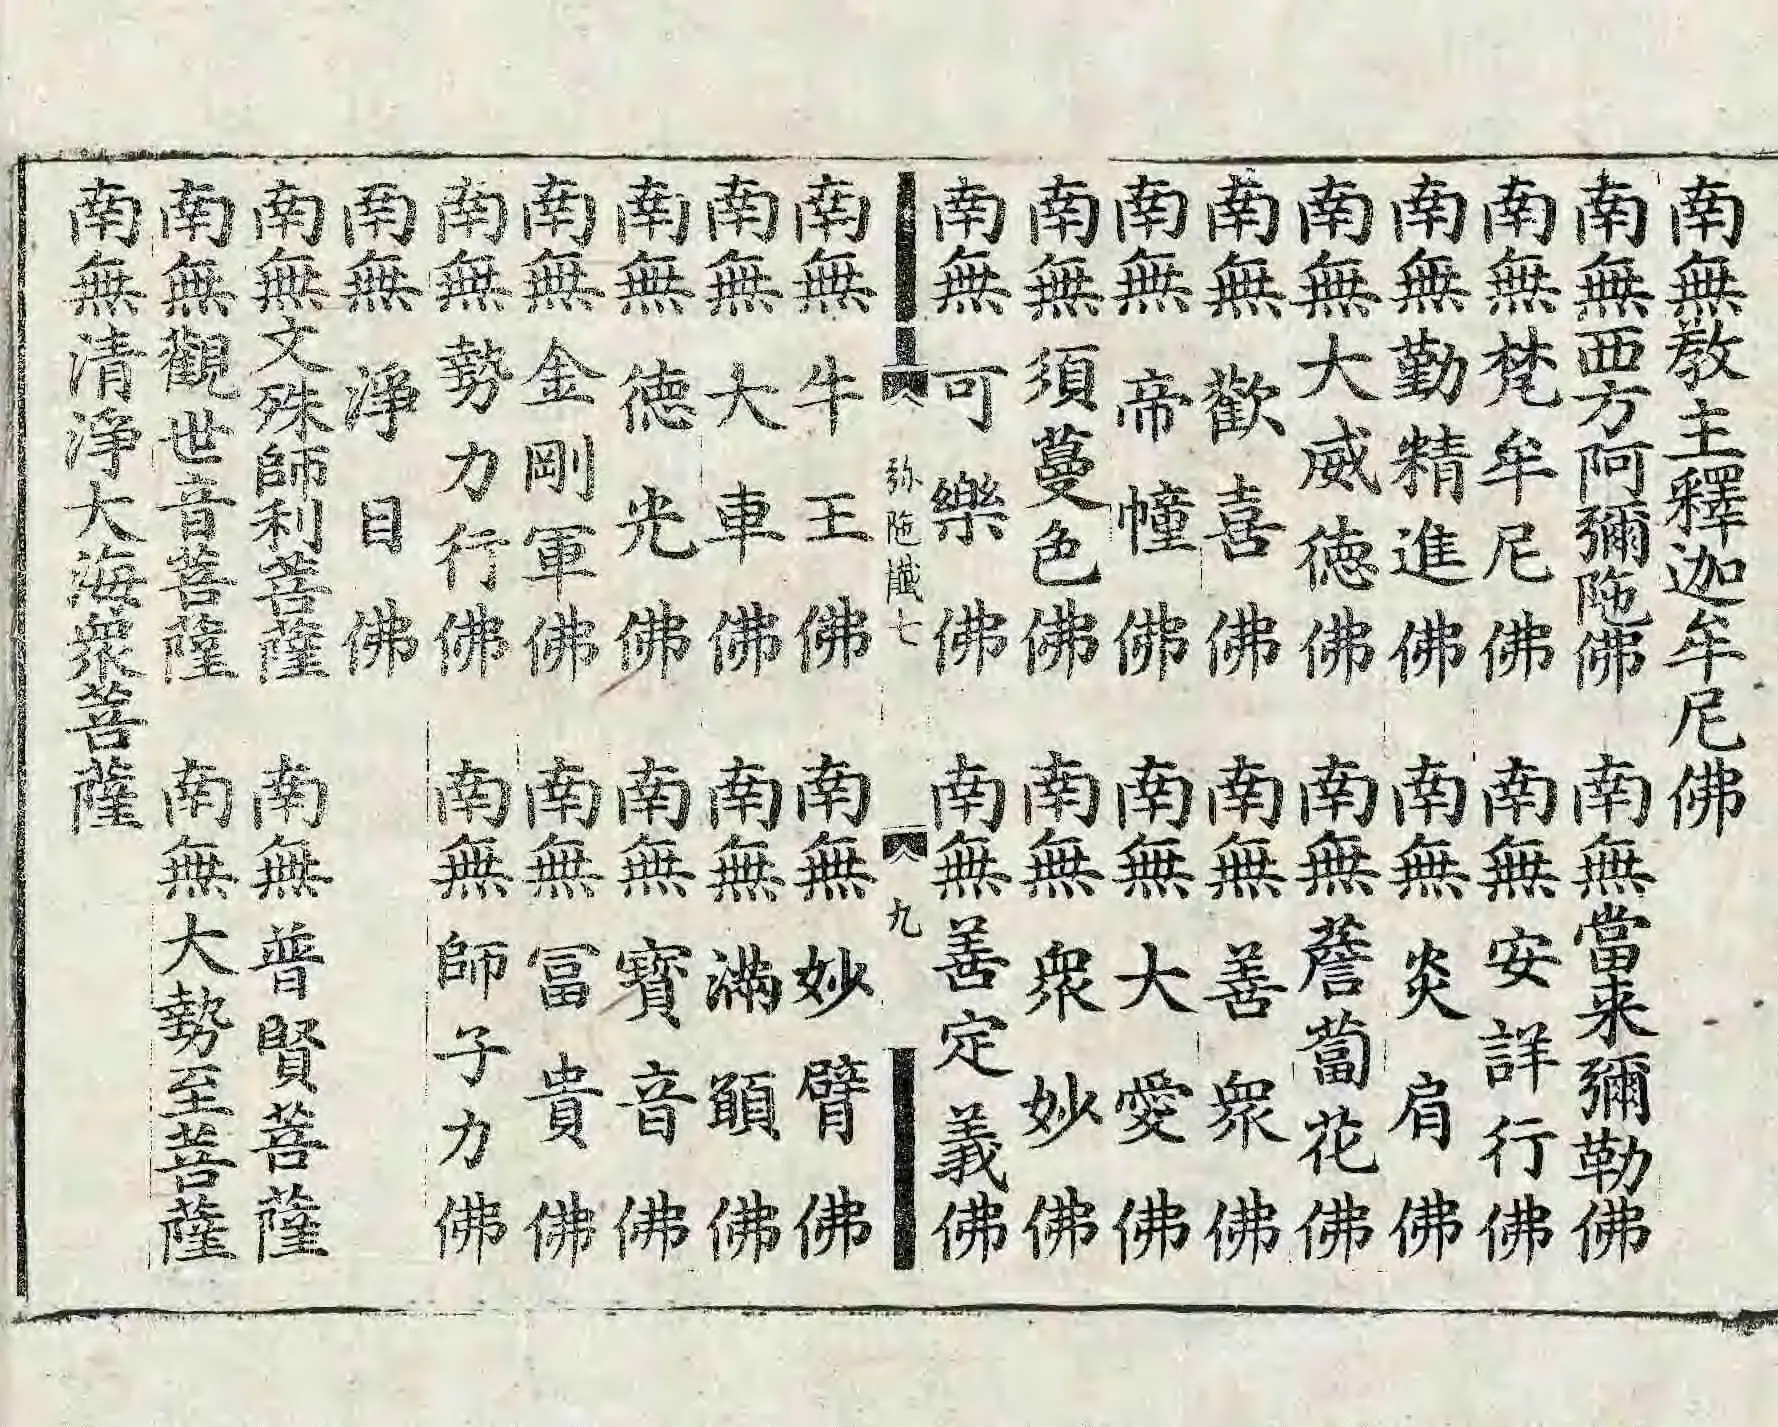 南無教主釋迦牟尼佛
南無西方阿彌陁佛 南無當来彌勒佛
南無梵牟尼佛 南無安詳行佛
南無勤精進佛 南無炎肩佛
南無大威德佛 南無薝蔔花佛
南無歡喜佛 南無善衆佛
南無帝幢佛 南無大愛佛
南無須蔓色佛 南無衆妙佛
南無可樂佛 南無善定義佛
弥陁懺七 九
南無牛王佛 南無妙臂佛
南無大車佛 南無滿顗佛
南無德光佛 南無寶音佛
南無金剛軍佛 南無冨貴佛
南無勢力行佛 南無師子力佛
南無淨目佛
南無文殊師利菩薩 南無普賢菩薩
南無觀世音菩薩 南無大勢至菩薩
南無清淨大海衆菩薩